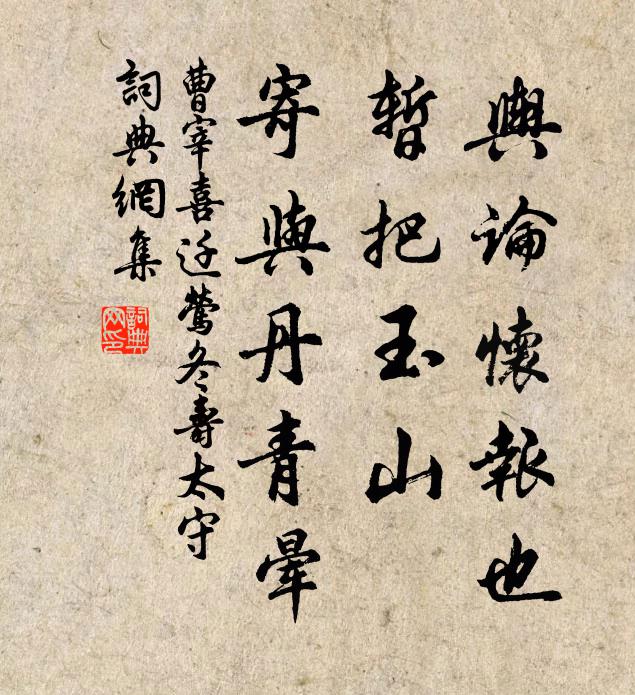 輿論懷報也
暫把玉山
寄與丹青暈
曹宰喜迁鶯冬壽太守
詞典網集
詞典网印